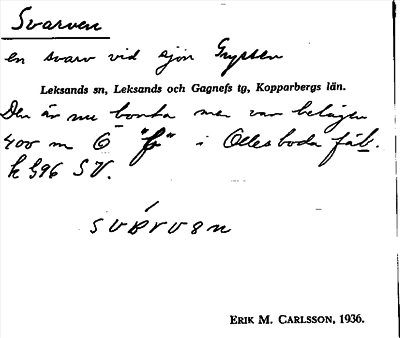 Svarven
en svarv vid sjön Gryssen
Leksands sn, Leksands och Gagnefs tg, Kopparbergs län.
Den är nu borta men var belägen
400 m Ö "f" i Ollesboda fäb.
k 596 SV.
svárven
ERIK M. CARLSSON, 1936.